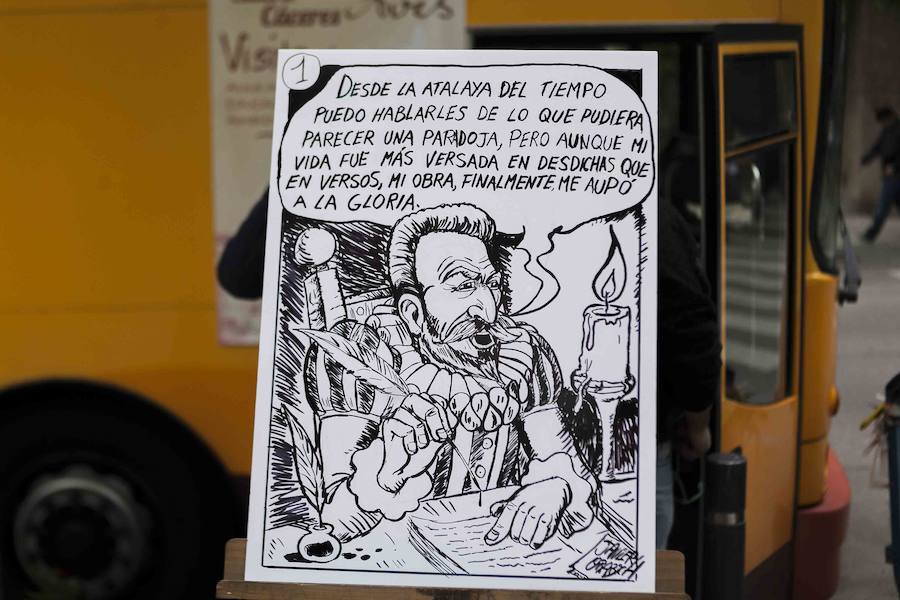 Cáceres
Aves
Visit
1
DESDE LA ATALAYA DEL TIEMPO
PUEDO HABLARLES DE LO QUE PUDIERA
PARECER UNA PARADOJA, PERO AUNQUE MI
VIDA FUE MÁS VERSADA EN DESDICHAS QUE
EN VERSOS, MI OBRA, FINALMENTE, ME AUPÓ
A LA GLORIA.